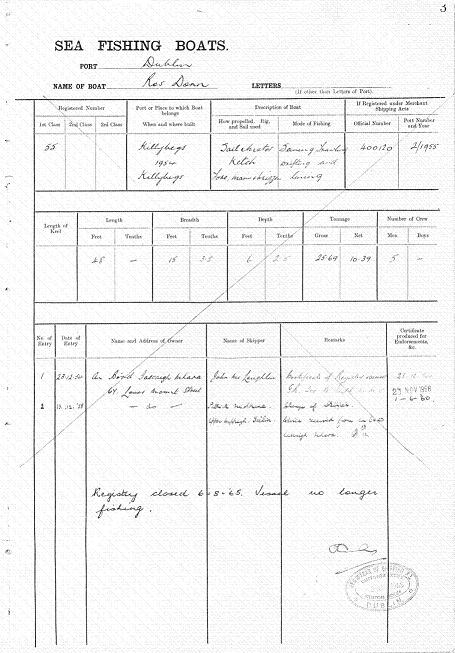 3
SEA FISHING BOATS.
PORT Dublin
NAME OF BOAT Ros Donn LETTERS
(If other than Letters of Port).
Registered Number
Port or Place to which Boat belongs
Description of Boat
If Registered under Merchant Shipping Acts
1st Class 2nd Class 3rd Class
When and where built
How propelled, Rig, and Sail used
Mode of Fishing
Official Number
Port Number and Year
55 Killybegs Sail & motor 400120 2/1955
1954 Ketch drifting and
Killybegs Fore, main & mizzen lining
Length of Keel
Length Breadth Depth Tonnage Number of Crew
Feet Tenths Feet Tenths Feet Tenths Gross Net Men Boys
48 — 15 3.5 6 2.5 25.69 10.39 5 —
No. of Entry
Date of Entry
Name and Address of Owner
Name of Skipper
Remarks
Certificate produced for Endorsements, &c.
1 An Bord Iascaigh Mhara John Mc Loughlin Certificate of Registry issued
64 Lower Mount Street 27 NOV 1956
2 — do — Change of Skipper 1-6-60
Registry closed 6-8-'65. Vessel no longer
fishing.
DUBLIN